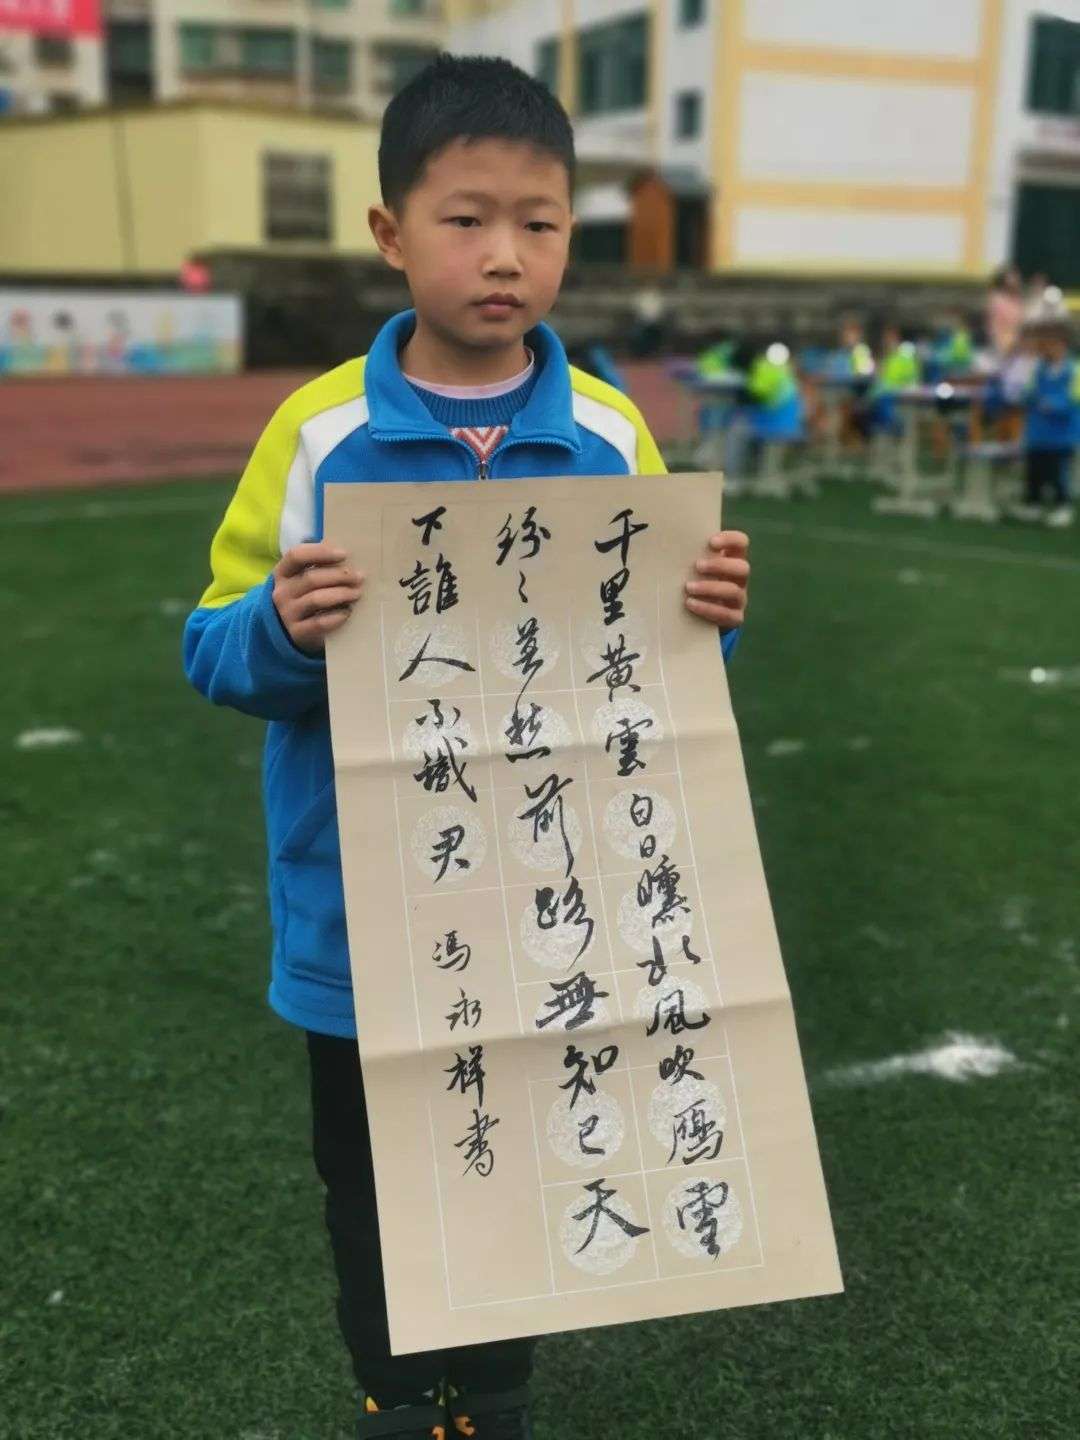 千里黄雲白日曛北風吹鴈雪
紛〻莫愁前路無知己天
下誰人不識君
馮永样書